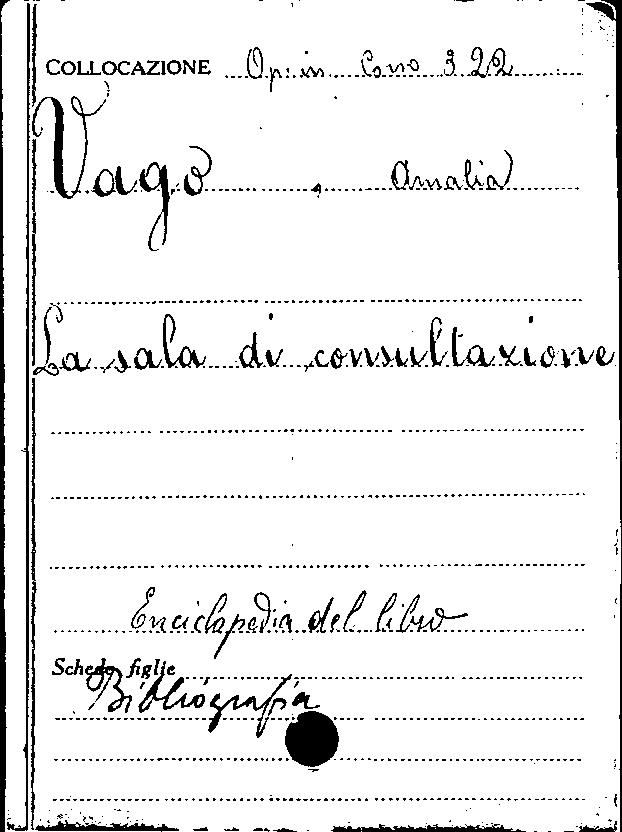 COLLOCAZIONE Op. in Cons 322
Vago, Amalia
La sala di consultazione
Enciclopedia del libro
Schede figlie
Bibliografia